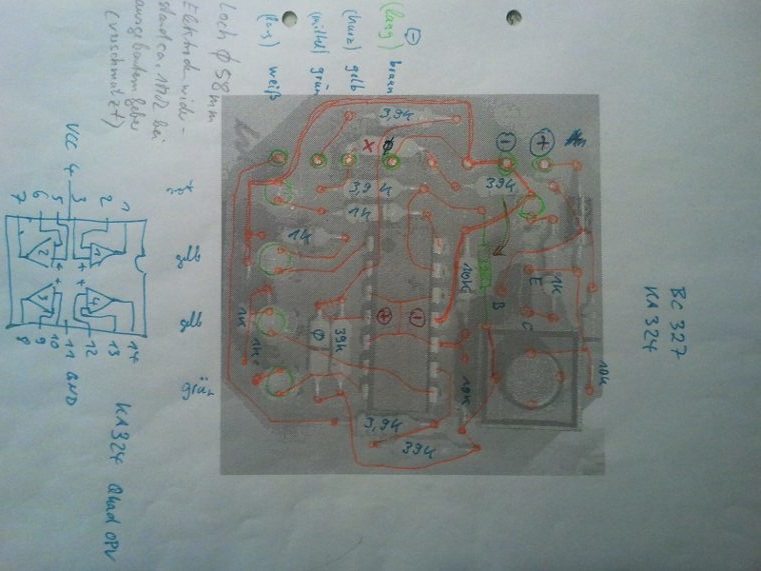 BC 327
KA 324
10k
+
1K
E
C
B
−
39k
10k
10k
39k
3,9k
3,9k
3,9k
1k
39k
1k
1K
1k
(lang) braun
(kurz) gelb
(mittel) grün
(lang) weiß
Loch ϕ 58mm
Elektrodenwider-
stand ca. 1MΩ bei
ausgebautem Geber
(verschmutzt)
gelb
gelb
grün
KA324 Quad OPV
14 13 12 11 10 9 8
GND
1 2 3 4 5 6 7
VCC
1
2
3
4